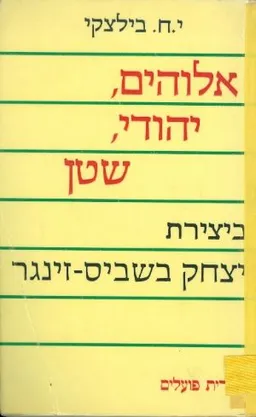 י.ח. בילצקי
אלוהים,
יהודי,
שטן
ביצירת
יצחק בשביס-זינגר
פועלים